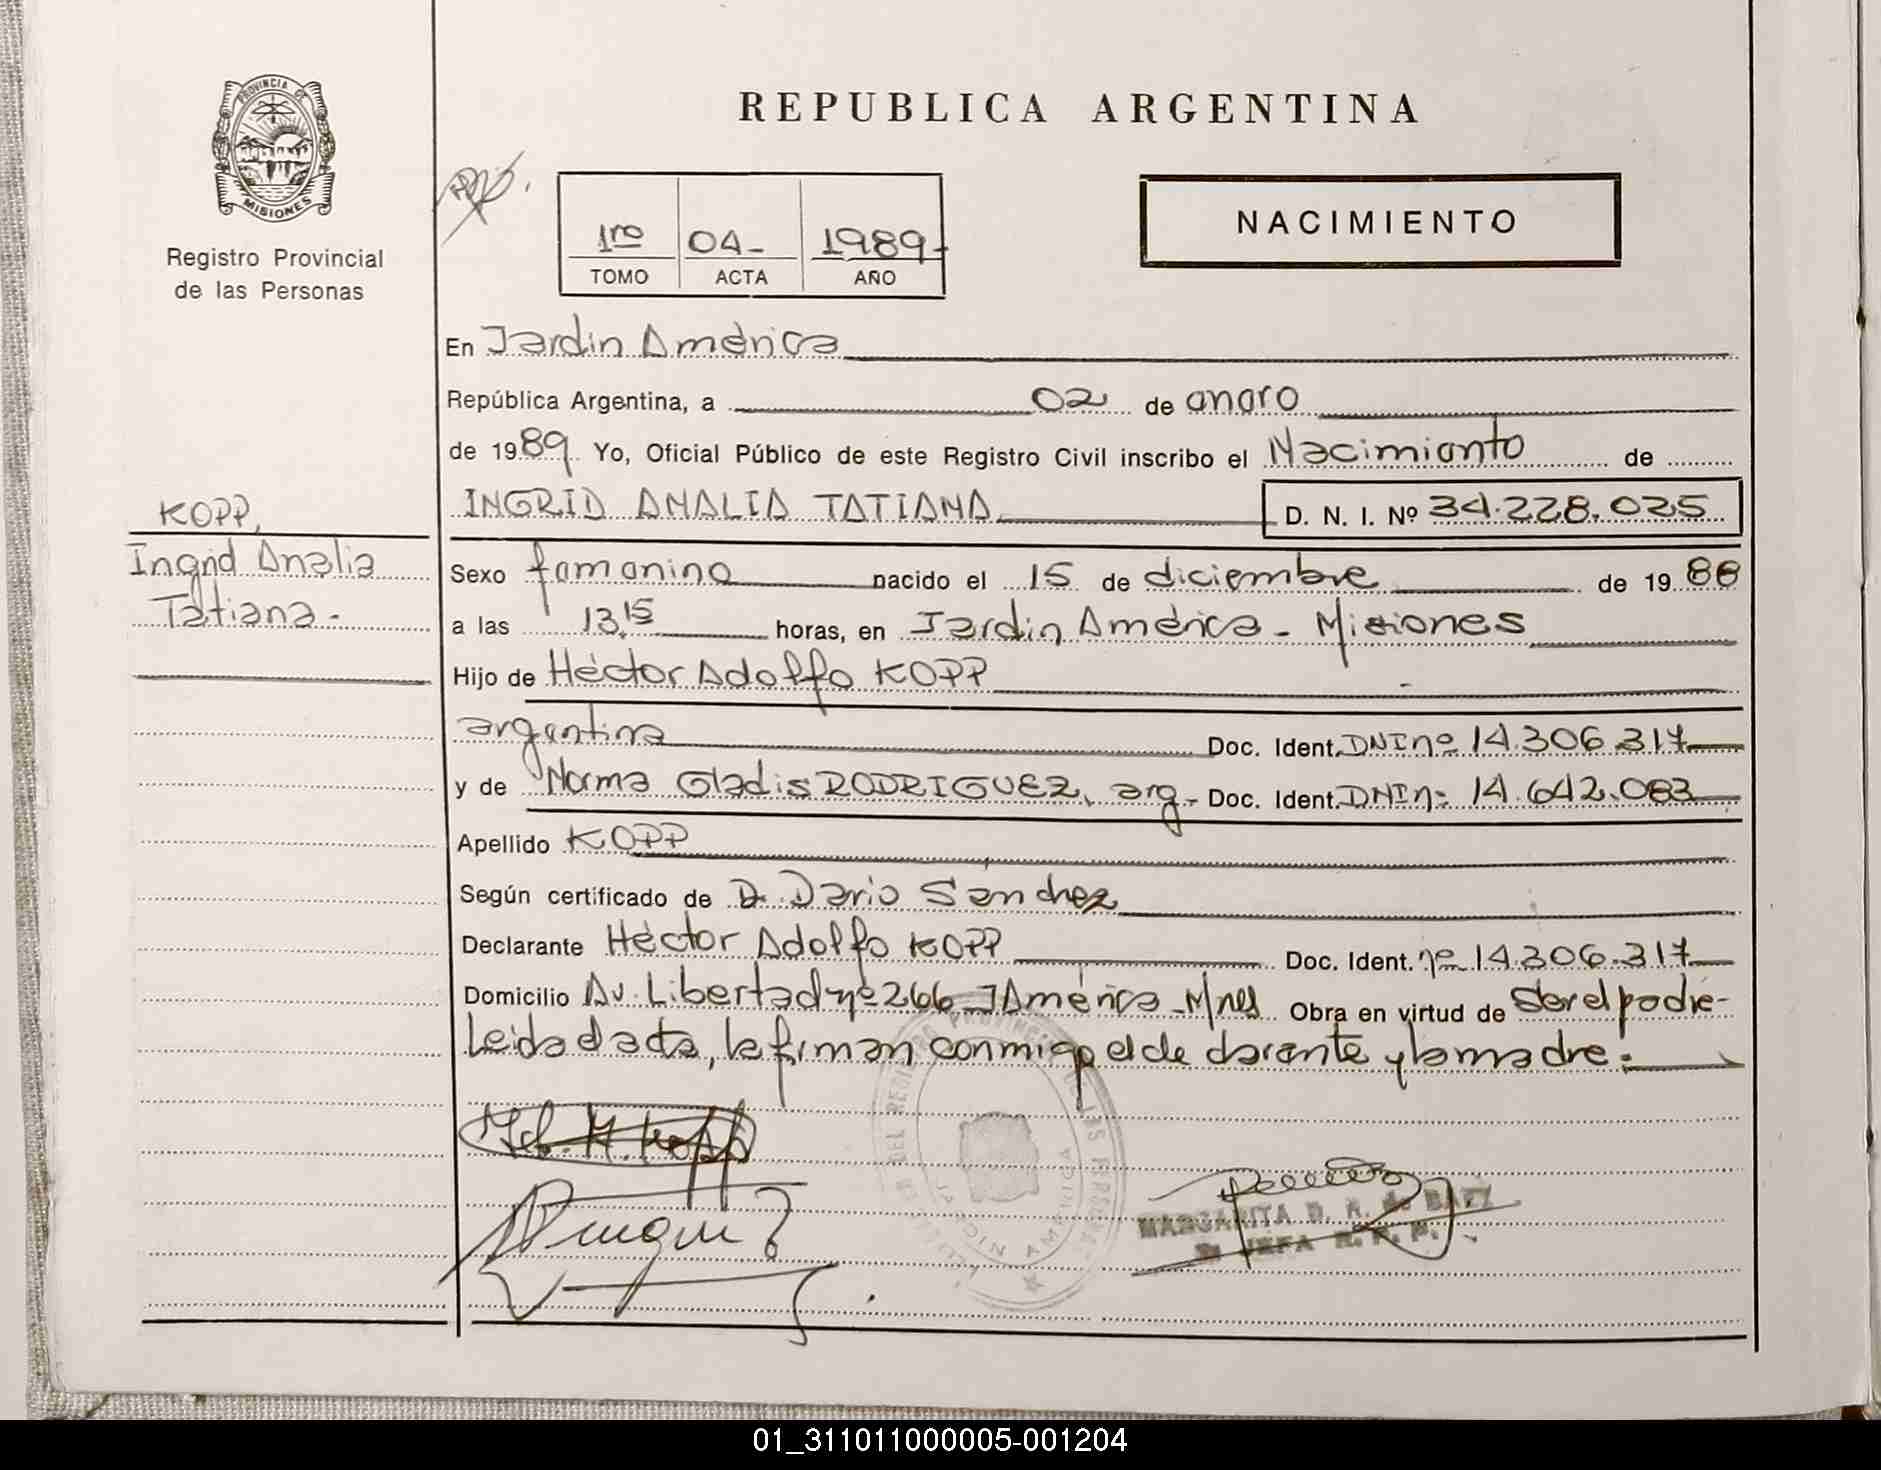 PROVINCIA DE
MISIONES
Registro Provincial
de las Personas
REPUBLICA ARGENTINA
1ro 04- 1989-
TOMO ACTA AÑO
NACIMIENTO
En Jardin América
República Argentina, a 02 de enero
de 1989 Yo, Oficial Público de este Registro Civil inscribo el Nacimiento de
INGRID ANALIA TATIANA D. N. I. Nº 34.228.025
KOPP,
Ingrid Analia
Tatiana.-
Sexo femenino nacido el 15 de diciembre de 1988
a las 13,15 horas, en Jardin América - Misiones
Hijo de Héctor Adolfo KOPP
argentina Doc. Ident. DNI nº 14.306.317
y de Norma Gladis RODRIGUEZ, arg.- Doc. Ident. DNI n: 14.642.083
Apellido KOPP
Según certificado de D. Dario Sanchez
Declarante Héctor Adolfo KOPP Doc. Ident. nº 14.306.317
Domicilio Av. Libertad nº 266 J América - Mnes Obra en virtud de Ser el padre-
Leida el acta, la firman conmigo el declarante y la madre.-
MARGARITA D. R. de BAEZ
JEFA R. P. P.
JARDIN AMERICA
01_311011000005-001204